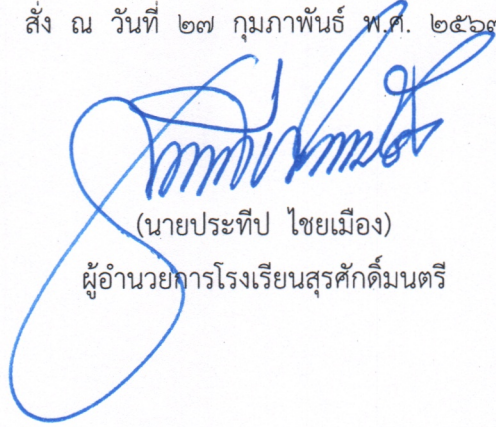 สั่ง ณ วันที่ ๒๗ กุมภาพันธ์ พ.ศ. ๒๕๖๙
(นายประทีป ไชยเมือง)
ผู้อำนวยการโรงเรียนสุรศักดิ์มนตรี